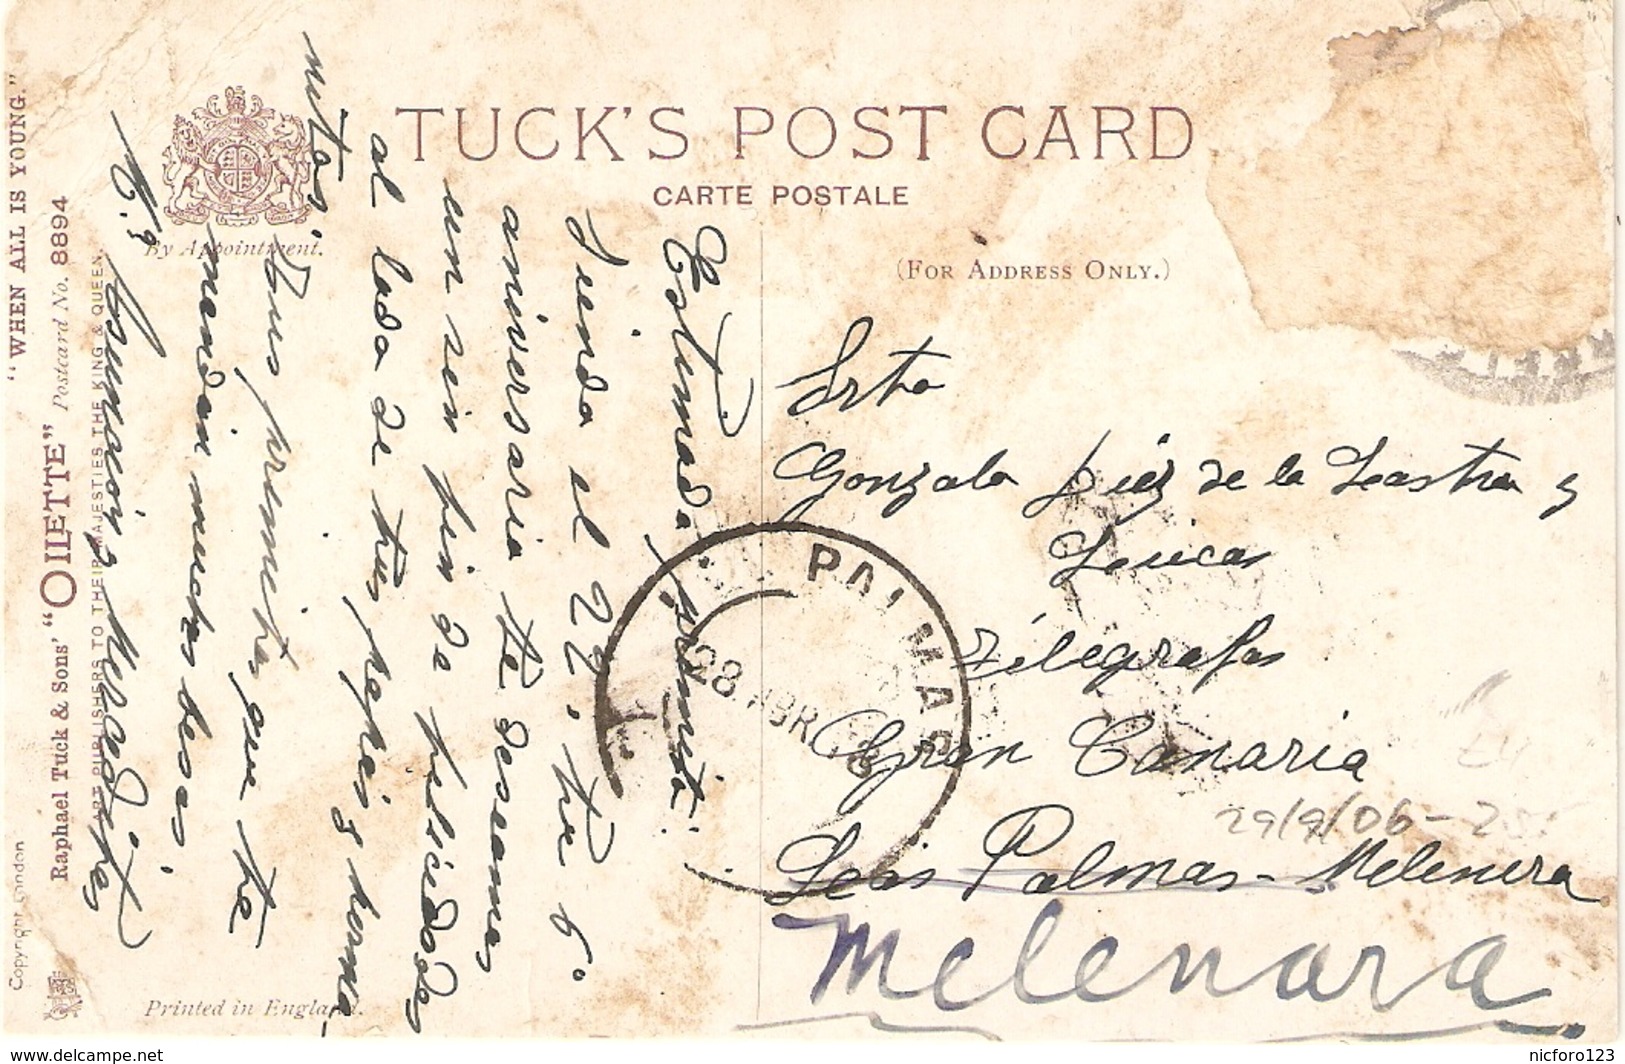 TUCK'S POST CARD
CARTE POSTALE
(FOR ADDRESS ONLY.)
By Appointment.
"WHEN ALL IS YOUNG."
Raphael Tuck & Sons' "OILETTE" Postcard No. 8894
ART PUBLISHERS TO THEIR MAJESTIES THE KING & QUEEN.
Copyright London
Printed in England.
Estimada primita:
Siendo el 22, tu 6º
aniversario te deseamos
un sin fin de felicidades
al lado de tus papás y herma-
nitos.
Tus primitas que te
mandan muchos besos,
Mª Asunción y Merceditas
Srta
Gonzala Diez de la Lastra y
Telégrafos
Gran Canaria
Las Palmas - Melenera
Melenara
PALMAS
28 ABR
29/9/06-
delcampe.net
nicforo123